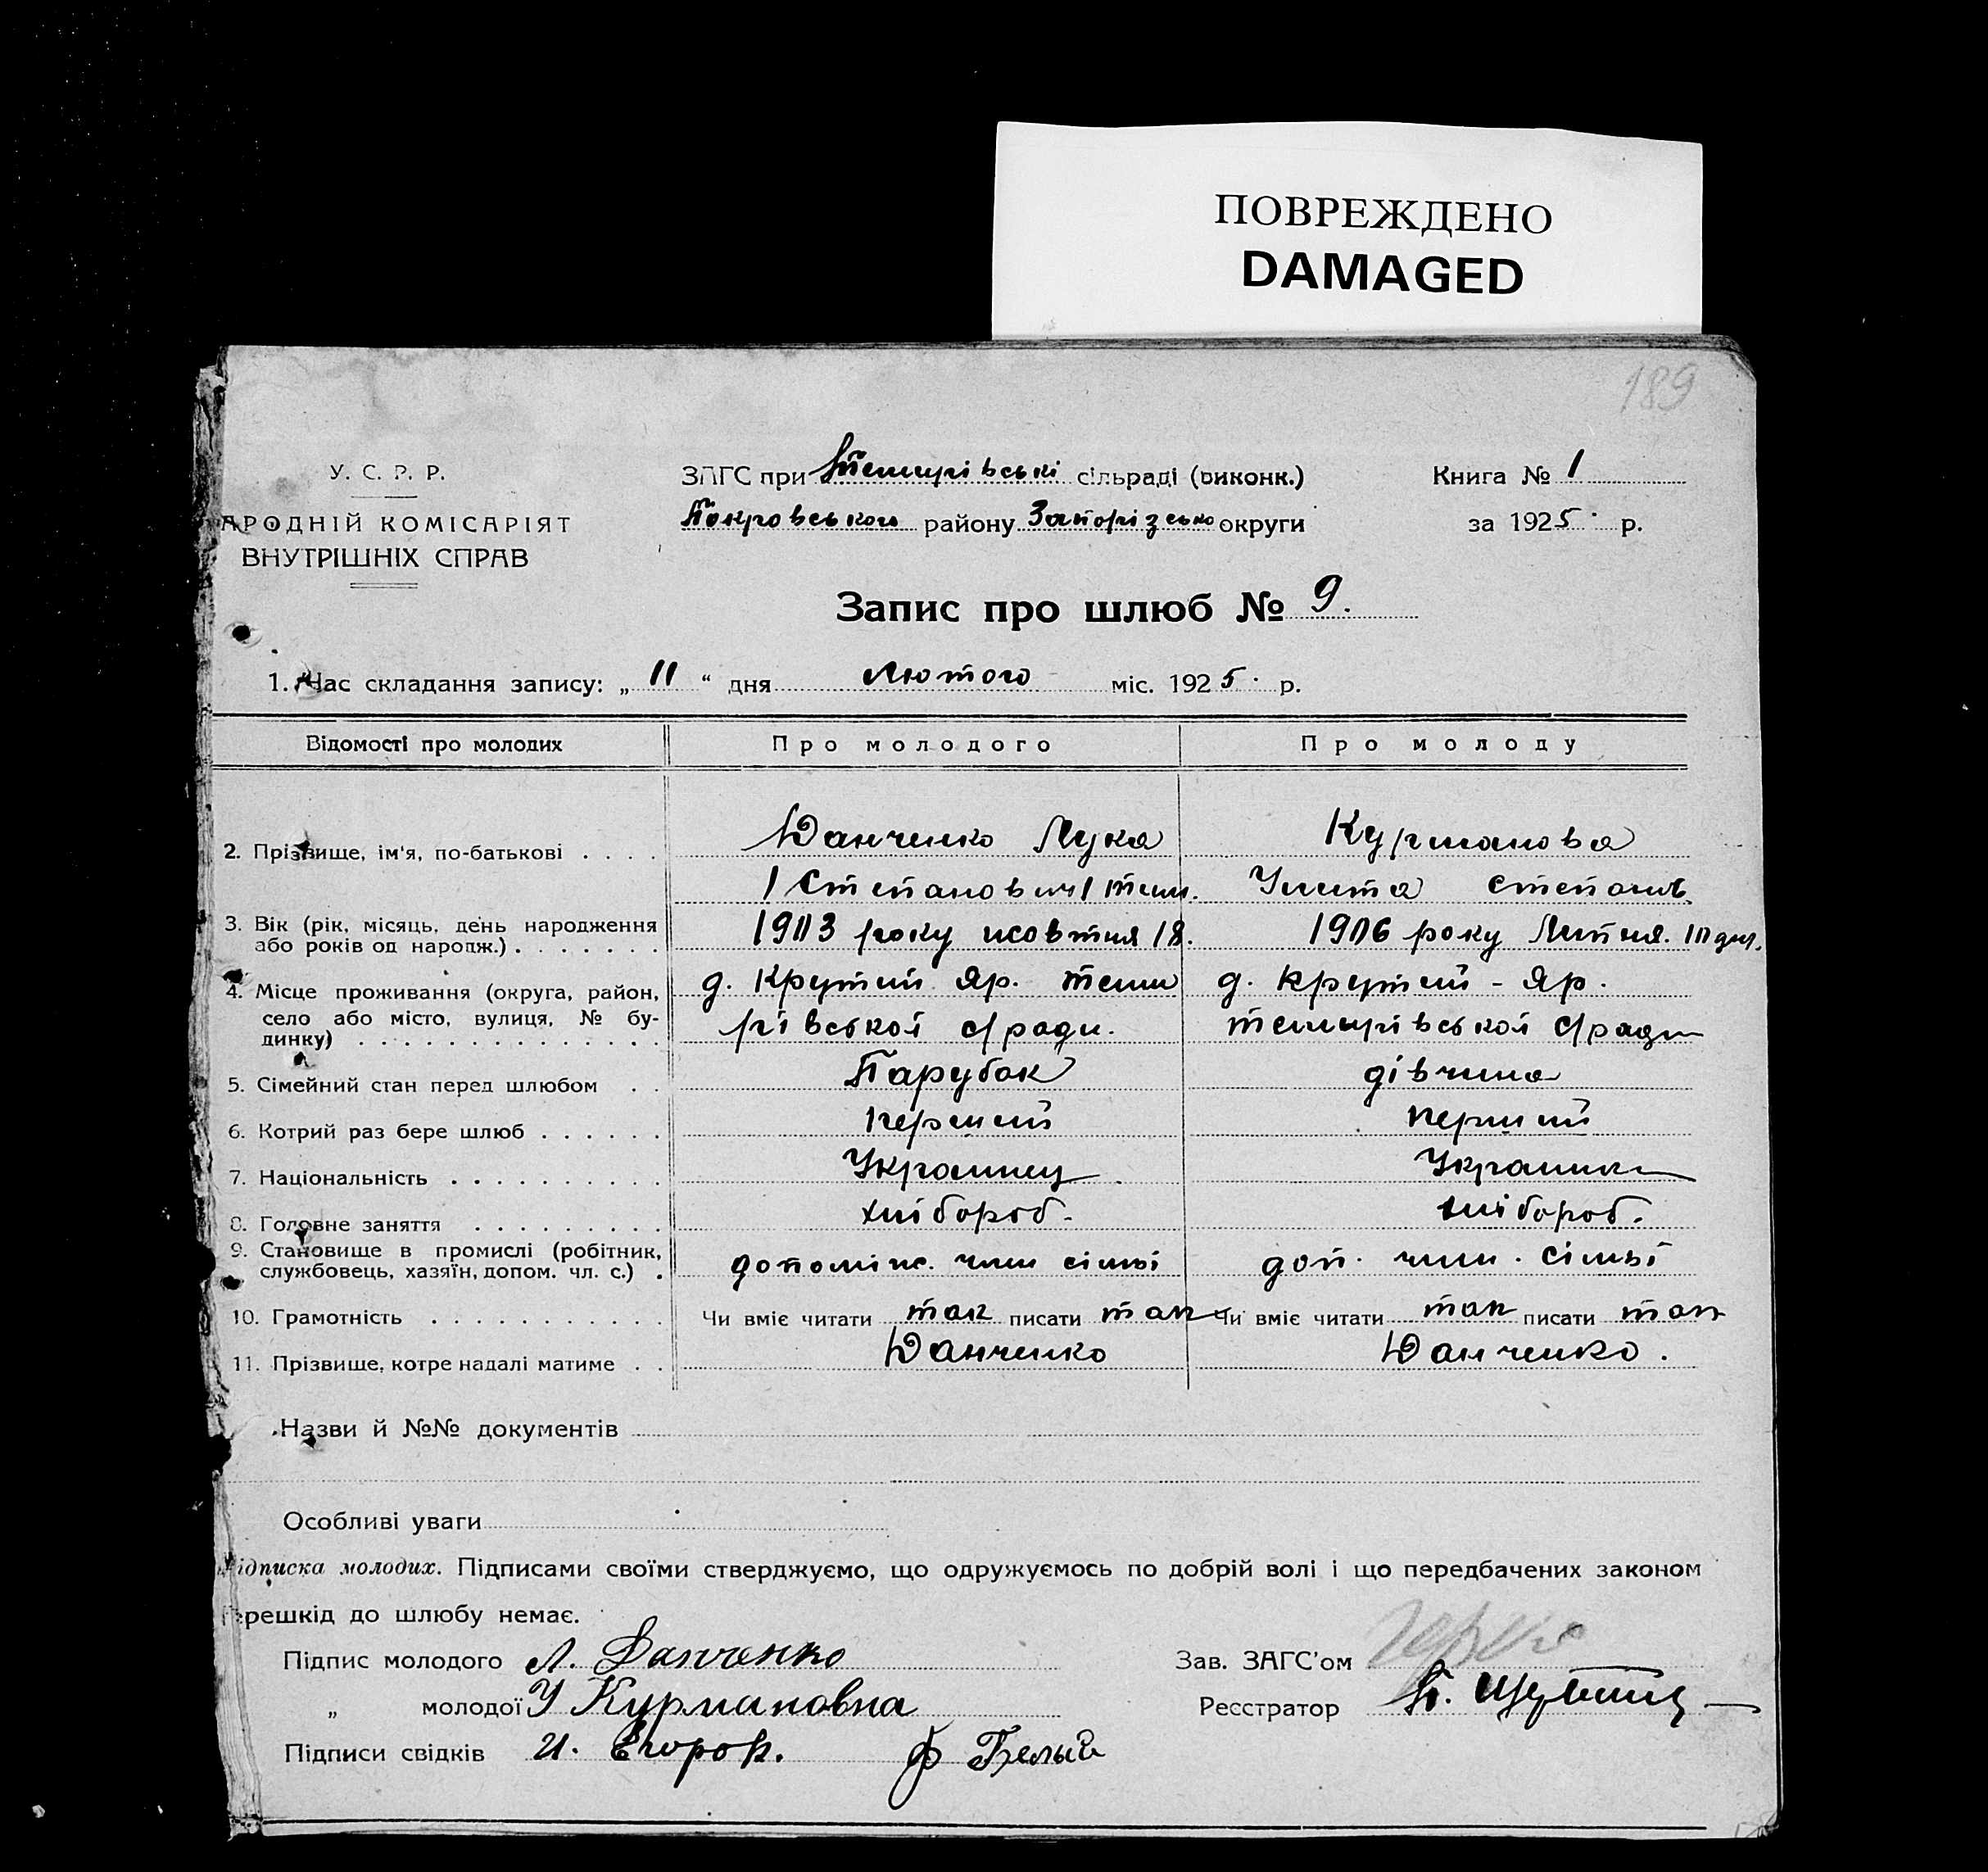 ПОВРЕЖДЕНО
DAMAGED
189
У. С. Р. Р.
АРОДНІЙ КОМІСАРІЯТ
ВНУТРІШНІХ СПРАВ
ЗАГС при Темирівські сільраді (виконк.)
Покровського району Запорізсько округи
Книга № 1
за 1925 р.
Запис про шлюб № 9.
1. Час складання запису: „ 11 “ дня Лютого міс. 1925 р.
Відомості про молодих Про молодого Про молоду
2. Прізвище, ім'я, по-батькові . . . . Данченко Лука Курманова
Степанович Улита степанів.
3. Вік (рік, місяць, день народження або років од народж.) . . . . . . . 1903 року жовтня 18. 1906 року Липня. 10 дня.
4. Місце проживання (округа, район, д. Крутий Яр. теми д. Крутий - Яр.
село або місто, вулиця, № бу- рівської с/ради. темирівської с/ради
динку) . . . . . . . . . . . . . .
5. Сімейний стан перед шлюбом . . Парубок дівчина
6. Котрий раз бере шлюб . . . . . . первший первший
7. Національність . . . . . . . . . . Украинец Украинка
8. Головне заняття . . . . . . . . . хлібороб. хлібороб.
9. Становище в промислі (робітник, службовець, хазяїн, допом. чл. с.) . допоміж. член сімьі доп. член. сімьі
10. Грамотність . . . . . . . . . . . Чи вміє читати так писати так Чи вміє читати так писати так
11. Прізвище, котре надалі матиме . . Данченко Данченко.
Назви й №№ документів
Особливі уваги
ідписка молодих. Підписами своїми стверджуємо, що одружуємось по добрій волі і що передбачених законом
ерешкід до шлюбу немає.
Підпис молодого Л. Данченко Зав. ЗАГС'ом
„ молодої У Курмановна Реєстратор
Підписи свідків И. Егоров. Ф Белый